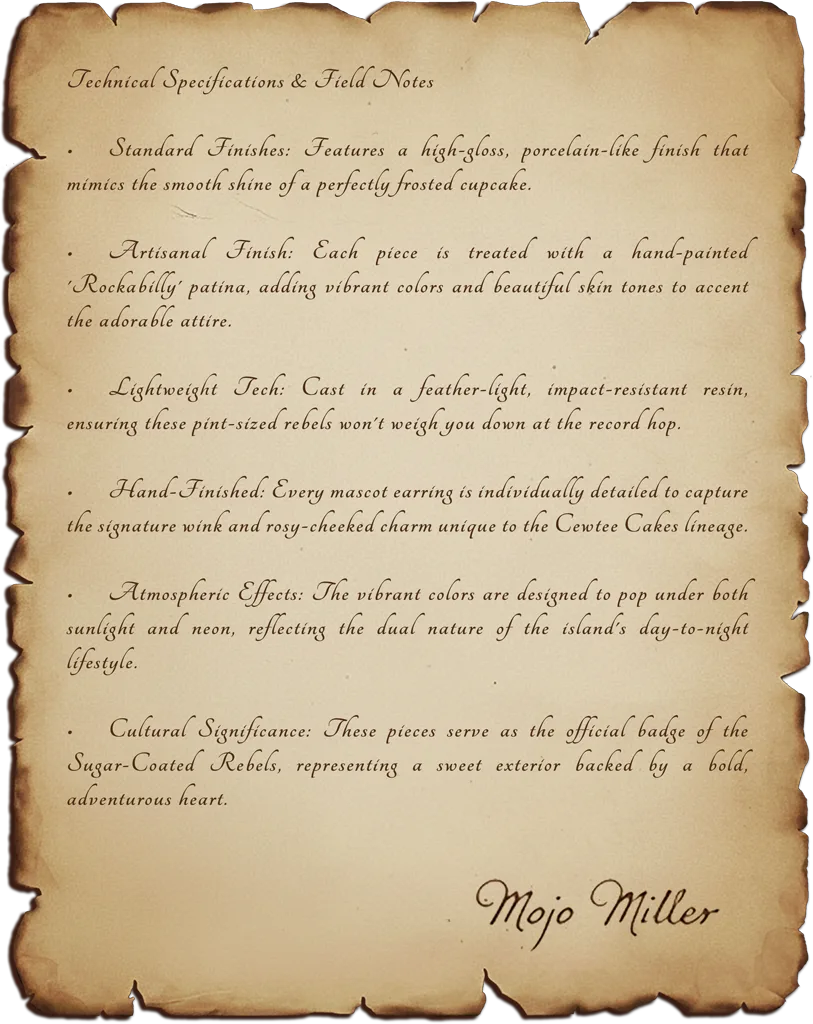 Technical Specifications & Field Notes
• Standard Finishes: Features a high-gloss, porcelain-like finish that
mimics the smooth shine of a perfectly frosted cupcake.
• Artisanal Finish: Each piece is treated with a hand-painted
'Rockabilly' patina, adding vibrant colors and beautiful skin tones to accent
the adorable attire.
• Lightweight Tech: Cast in a feather-light, impact-resistant resin,
ensuring these pint-sized rebels won't weigh you down at the record hop.
• Hand-Finished: Every mascot earring is individually detailed to capture
the signature wink and rosy-cheeked charm unique to the Cewtee Cakes lineage.
• Atmospheric Effects: The vibrant colors are designed to pop under both
sunlight and neon, reflecting the dual nature of the island's day-to-night
lifestyle.
• Cultural Significance: These pieces serve as the official badge of the
Sugar-Coated Rebels, representing a sweet exterior backed by a bold,
adventurous heart.
Mojo Miller